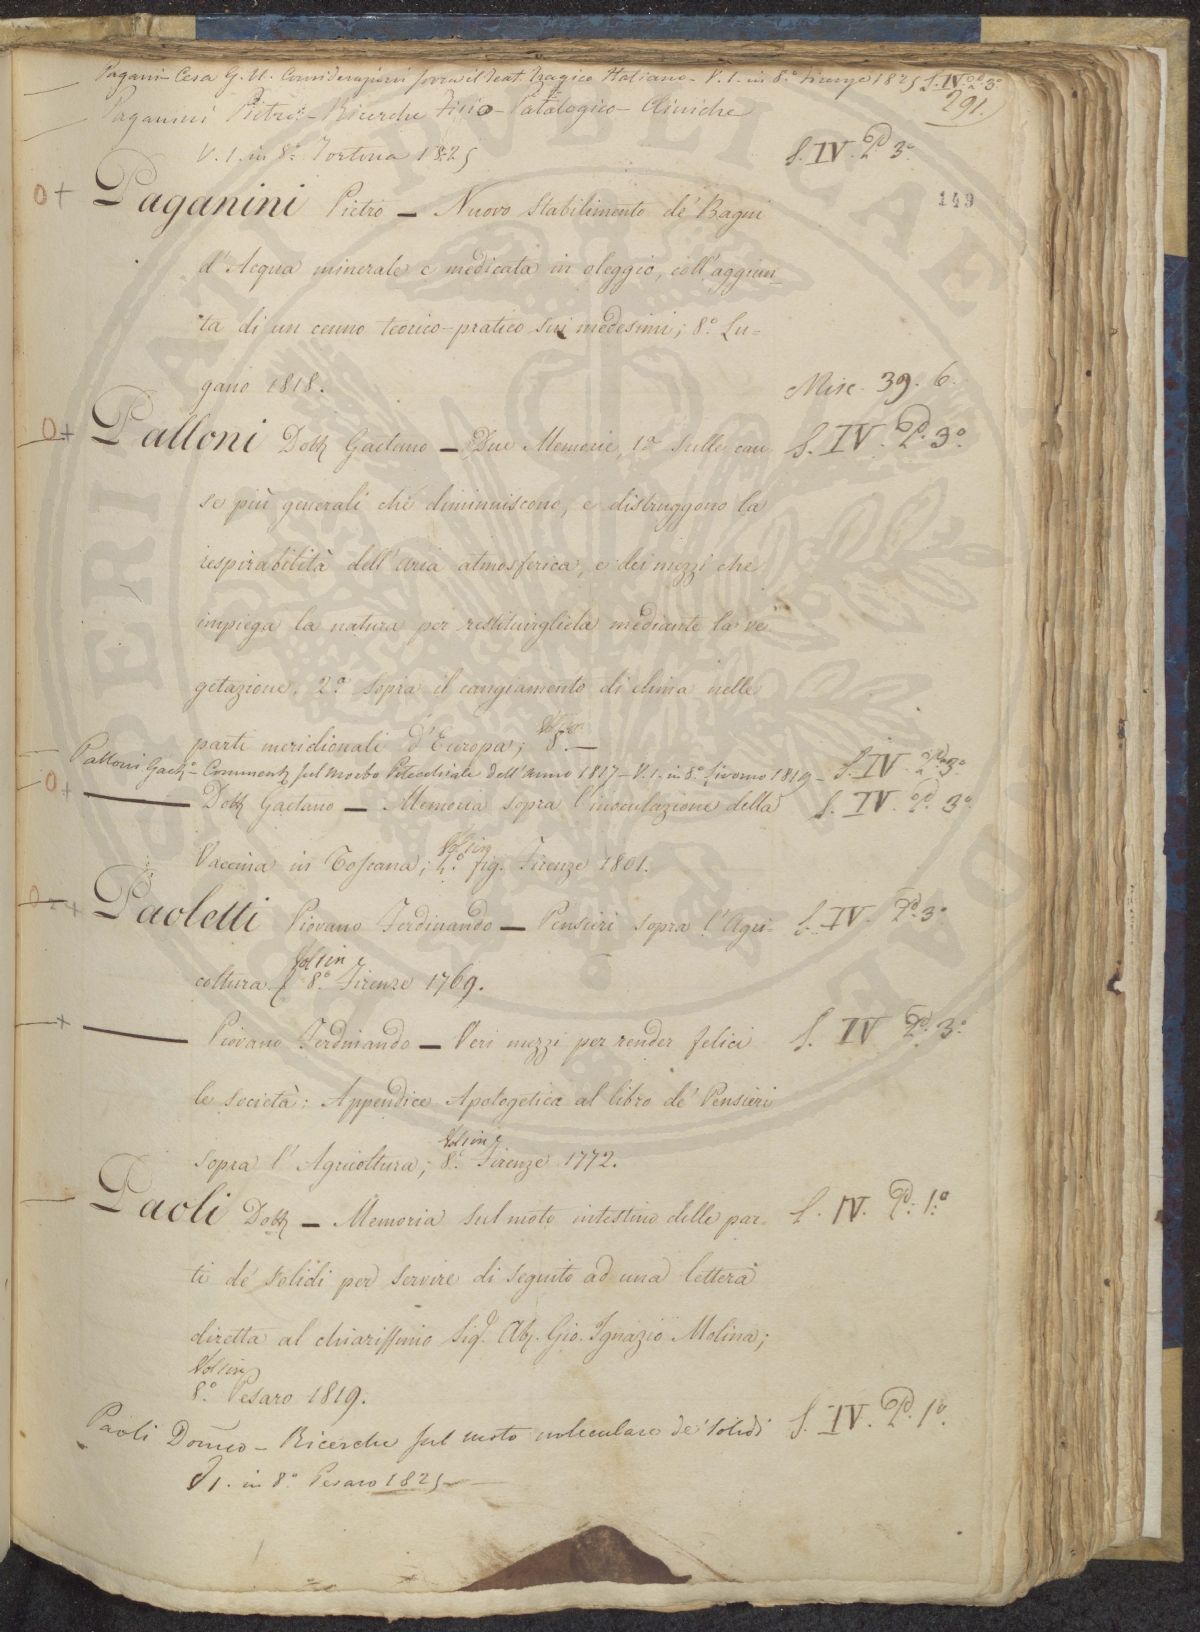 Pagani-Cesa G. U. Considerazioni sovra il Teat. Tragico Italiano - V. 1. in 8.° Firenze 1825 S. IV. P.° 3°
291.
Paganini Pietro - Ricerche Fisio-Patalogico-Cliniche
V. 1. in 8.° Tortona 1825 S. IV. P. 3°
Paganini Pietro — Nuovo Stabilimento de' Bagni
149
d'Acqua minerale e medicata in oleggio, coll'aggiun-
ta di un cenno teorico-pratico sui medesimi; 8.° Lu=
gano 1818. Misc. 39. 6.
Palloni Dott Gaetano — Due Memorie, 1.a sulle cau S. IV. P. 3°
se più generali che diminuiscono, e distruggono la
respirabilità dell'aria atmosferica, e dei mezzi che
impiega la natura per restituirgliela mediante la ve
getazione. 2.a sopra il cangiamento di clima nelle
parti meridionali d'Europa; 8.° —
Palloni Gaet.° - Comment. sul morbo Petecchiale dell'anno 1817 - V. 1. in 8.° Livorno 1819 - S. IV. P. 3°
— Dott Gaetano — Memoria sopra l'inoculazione della S. IV. P. 3°
Vol in
Vaccina in Toscana; 4.° fig. Firenze 1801.
Paoletti Piovano Ferdinando — Pensieri sopra l'Agri= S. IV. P. 3°
Vol in
coltura. 8.° Firenze 1769.
— Piovano Ferdinando — Veri mezzi per render felici S. IV P. 3°
le società: Appendice Apologetica al libro de' Pensieri
Vol in
sopra l'Agricoltura; 8.° Firenze 1772.
Paoli Dott — Memoria sul moto intestino delle par= S. IV. P. 1°
ti de' solidi per servire di seguito ad una lettera
diretta al chiarissimo Sig.r Ab. Gio. Ignazio Molina;
Vol in
8.° Pesaro 1819.
Paoli Domco - Ricerche sul moto molecolare de' solidi S. IV. P. 1°
V 1. in 8.° Pesaro 1825